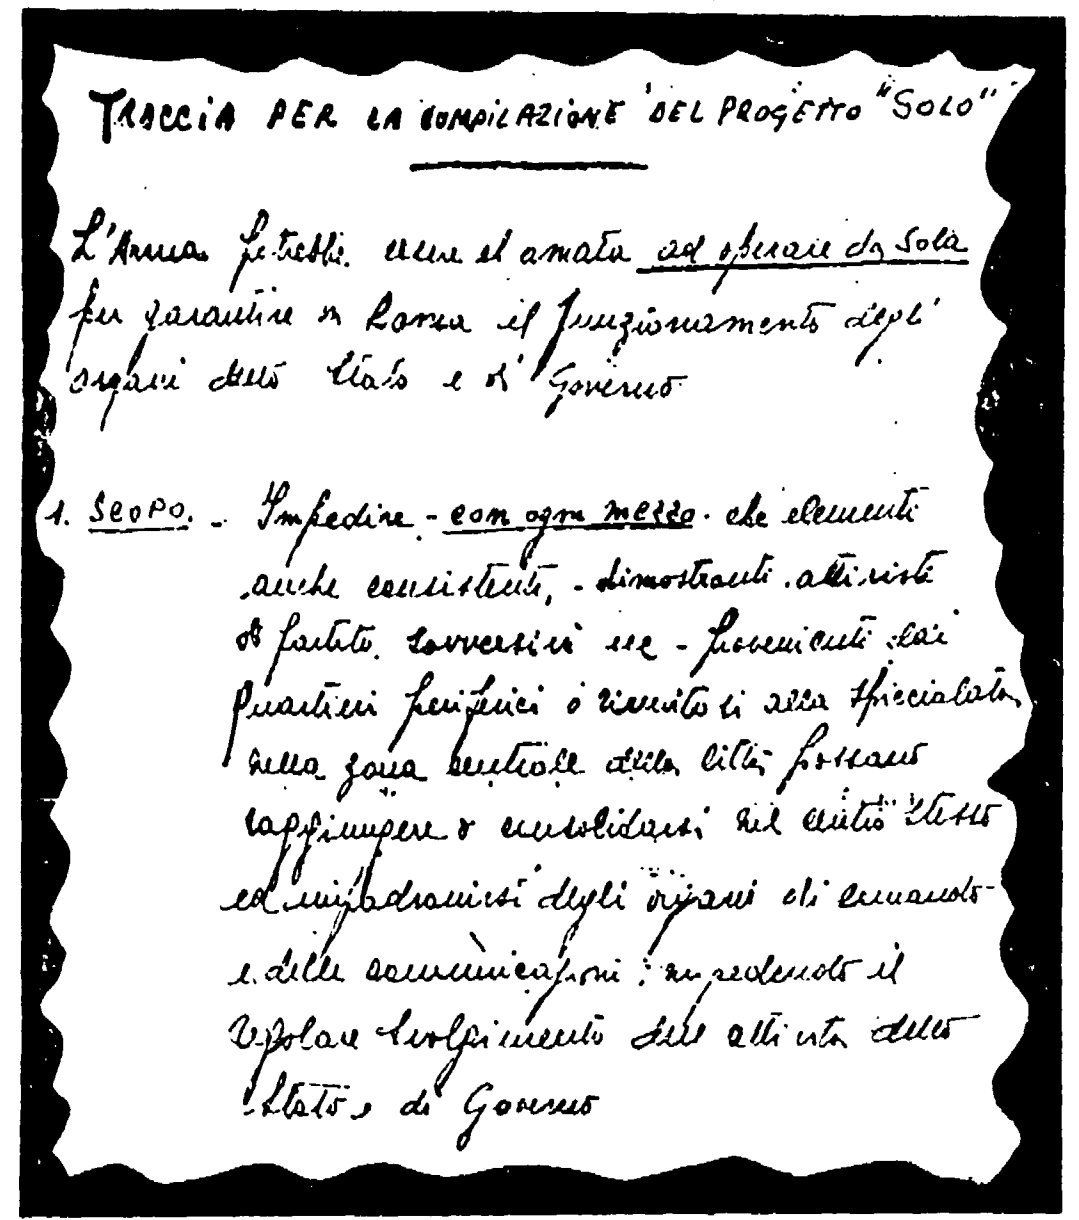 TRACCIA PER LA COMPILAZIONE DEL PROGETTO "SOLO"
L'Arma potrebbe essere chiamata ad operare da sola
per garantire in Roma il funzionamento degli
organi dello Stato e di Governo
1. SCOPO. - Impedire - con ogni mezzo - che elementi
anche consistenti, - dimostranti attivisti
di partito, sovversivi ecc - provenienti dai
quartieri periferici o riunitosi alla spicciolata
nella zona centrale della città possano
raggiungere o consolidarsi nel centro stesso
ed impadronirsi degli organi di comando
e delle comunicazioni impedendo il
regolare svolgimento delle attività dello
Stato e di Governo